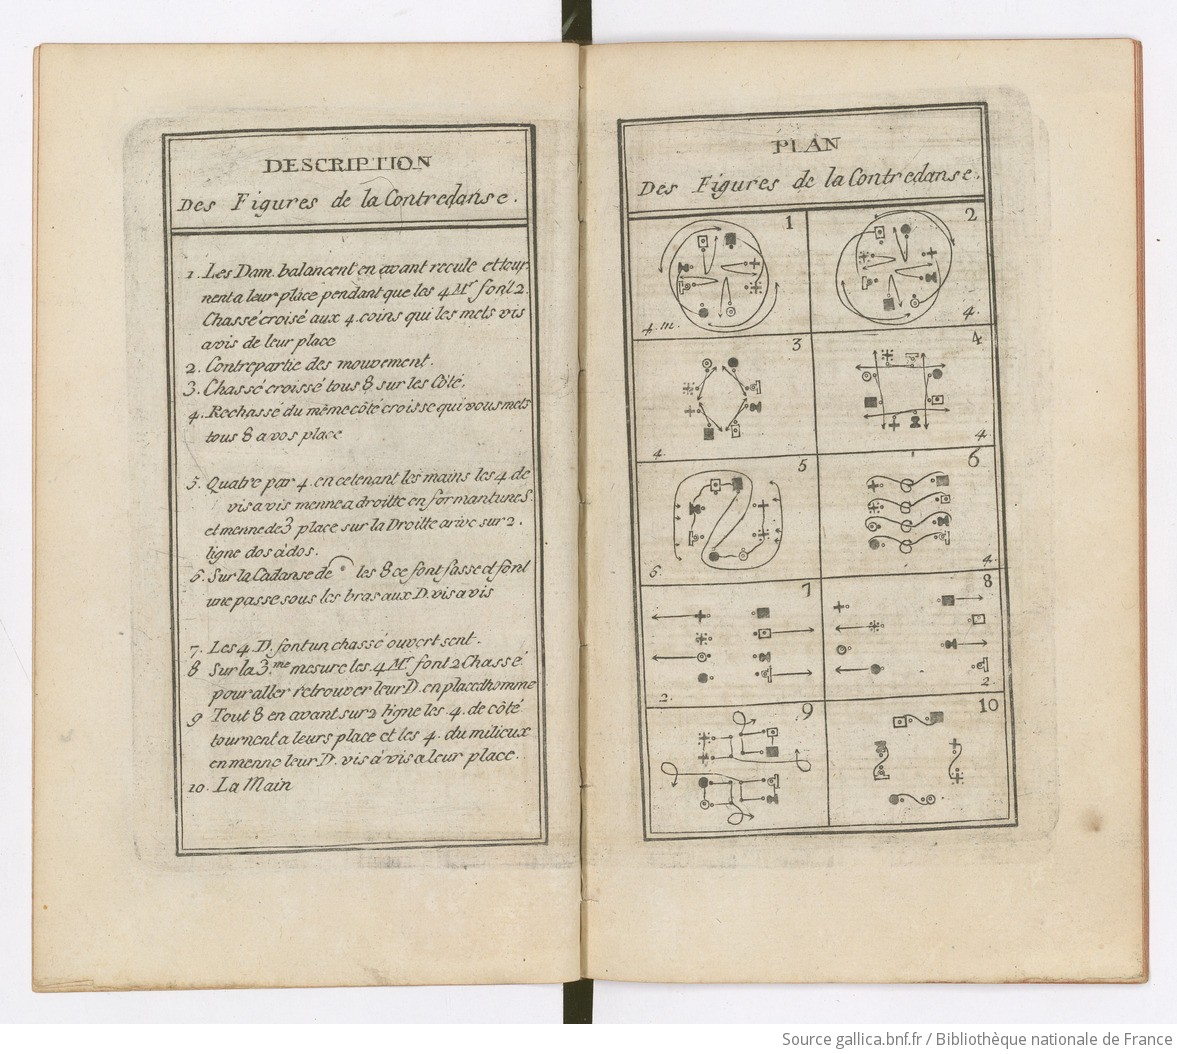 DESCRIPTION
Des Figures de la Contredanse.
1. Les Dam. balancent en avant recule et tour
nent a leur place pendant que les 4 Mr. font 2.
Chassé croisé aux 4. coins qui les mets vis
avis de leur place
2. Contrepartie des mouvement.
3. Chassé croissé tous 8 sur les Côté.
4. Rechassé du même côté croisse qui vous mets
tous 8 a vos place
5. Quatre par 4. en ce tenant les mains les 4 de
vis a vis menne a droitte en formant une S.
et menne de 3 place sur la Droitte arive sur 2.
ligne dos à dos.
6. Sur la Cadanse de les 8 ce font fasse et font
une passe sous les bras aux D. vis a vis
7. Les 4 D. font un chassé ouvert sent.
8 Sur la 3.me mesure les 4 Mr font 2 Chassé
pour aller retrouver leur D. en place d'homme
9 Tout 8 en avant sur 2 ligne les 4. de côté
tournent a leurs place et les 4. du milieux
en menne leur D. vis à vis a leur place.
10. La Main
PLAN
Des Figures de la Contredanse.
1
4. m.
2
4.
3
4.
4
4.
5
6.
6
4.
7
2.
8
2.
9
10
Source gallica.bnf.fr / Bibliothèque nationale de France